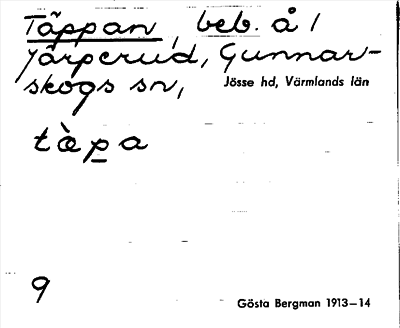 Täppan, beb. å /
Järperud, Gunnar-
skogs sn,
Jösse hd, Värmlands län
tæ̀pa
9
Gösta Bergman 1913–14